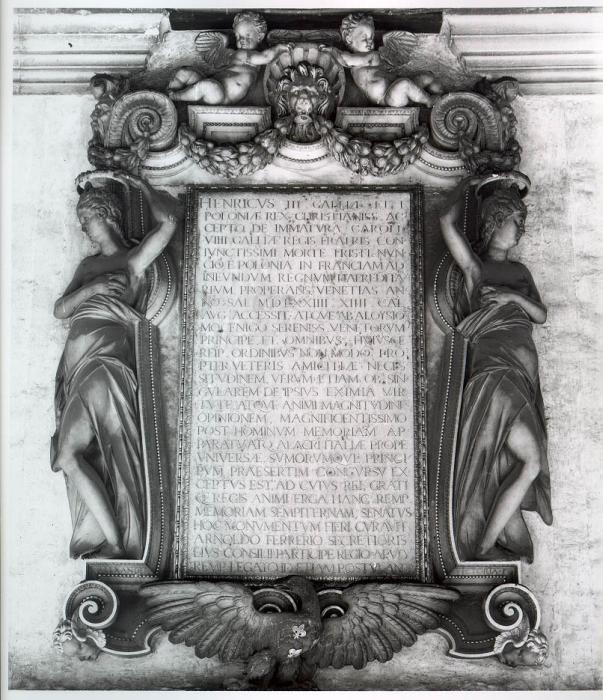 HENRICVS III GALLIÆ ET
POLONIÆ REX CHRISTIANISS AC
CEPTO DE IMMATVRA CAROLI
VIIII GALLIÆ REGIS FRATRIS CON
IVNCTISSIMI MORTE TRISTI NVN
CIO E POLONIA IN FRANCIAM AD
INEVNDVM REGNVM HÆREDITA
RIVM PROPERANS VENETIAS AN
SAL MDLXXIIII XIIII CAL
AVG ACCESSIT ATQVE AB ALOYSIO
MOCENIGO SERENISS VENETORVM
PRINCIPE ET OMNIBVS HVIVSCE
REIP ORDINIBVS NON MODO PRO
PTER VETERIS AMICITIÆ NECES
SITVDINEM, VERVM ETIAM OB SIN
GVLAREM DE IPSIVS EXIMIA VIR
TVTE ATQVE ANIMI MAGNITVDINE
OPINIONEM, MAGNIFICENTISSIMO
POST HOMINVM MEMORIAM AP
PARATV ATQ ALACRITATE PROPE
VNIVERSÆ SVMMORVMQVE PRINCI
PVM PRAESERTIM CONCVRSV EX
CEPTVS EST AD CVIVS REI, GRATI
Q REGIS ANIMI ERGA HANC REMP
MEMORIAM SEMPITERNAM, SENATVS
HOC MONVMENTVM FIERI CVRAVIT
ARNOLDO FERRERIO SECRETIORIS
EIVS CONSILII PARTICIPE REGIO APVD
REMP LEGATO ID ETIAM POSTVLAN